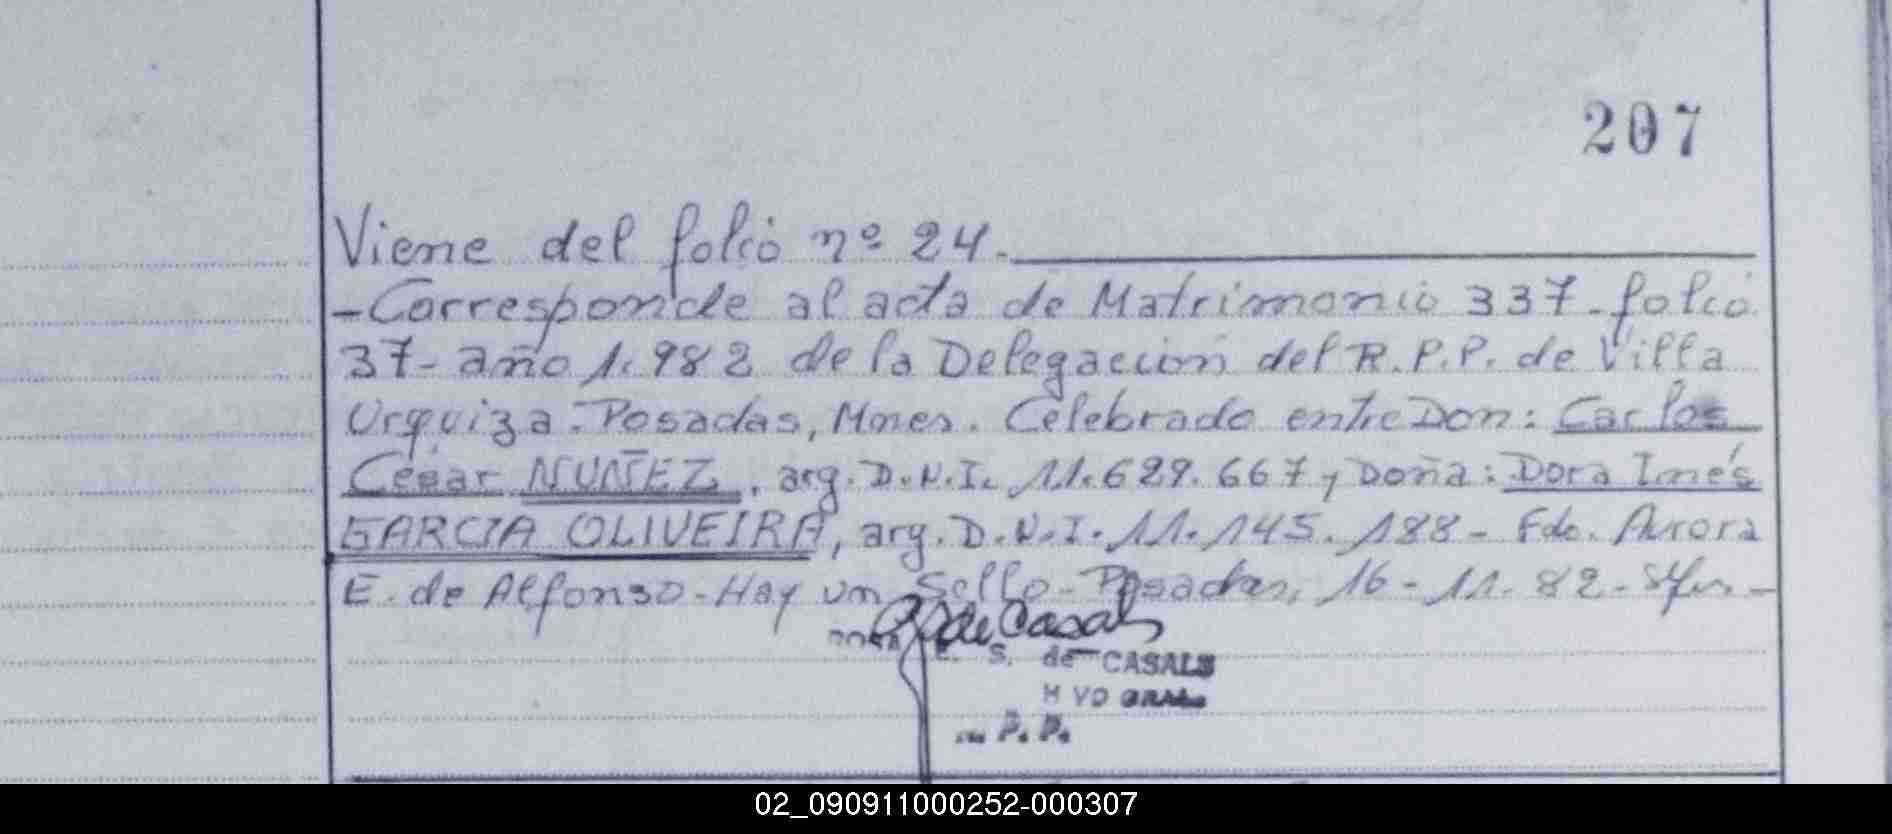 207
Viene del folio nº 24.
-Corresponde al acta de Matrimonio 337-folio
37-año 1.982 de la Delegacion del R.P.P. de Villa
Urquiza-Posadas, Mnes. Celebrado entre Don: Carlos
César NUÑEZ, arg. D.N.I. 11.629.667 y Doña: Dora Inés
GARCIA OLIVEIRA, arg. D.N.I. 11.145.188- Fdo. Aurora
E. de Alfonso-Hay un Sello-Posadas, 16-11-82-
de Casals
E. S. de CASALS
P. P.
02_090911000252-000307